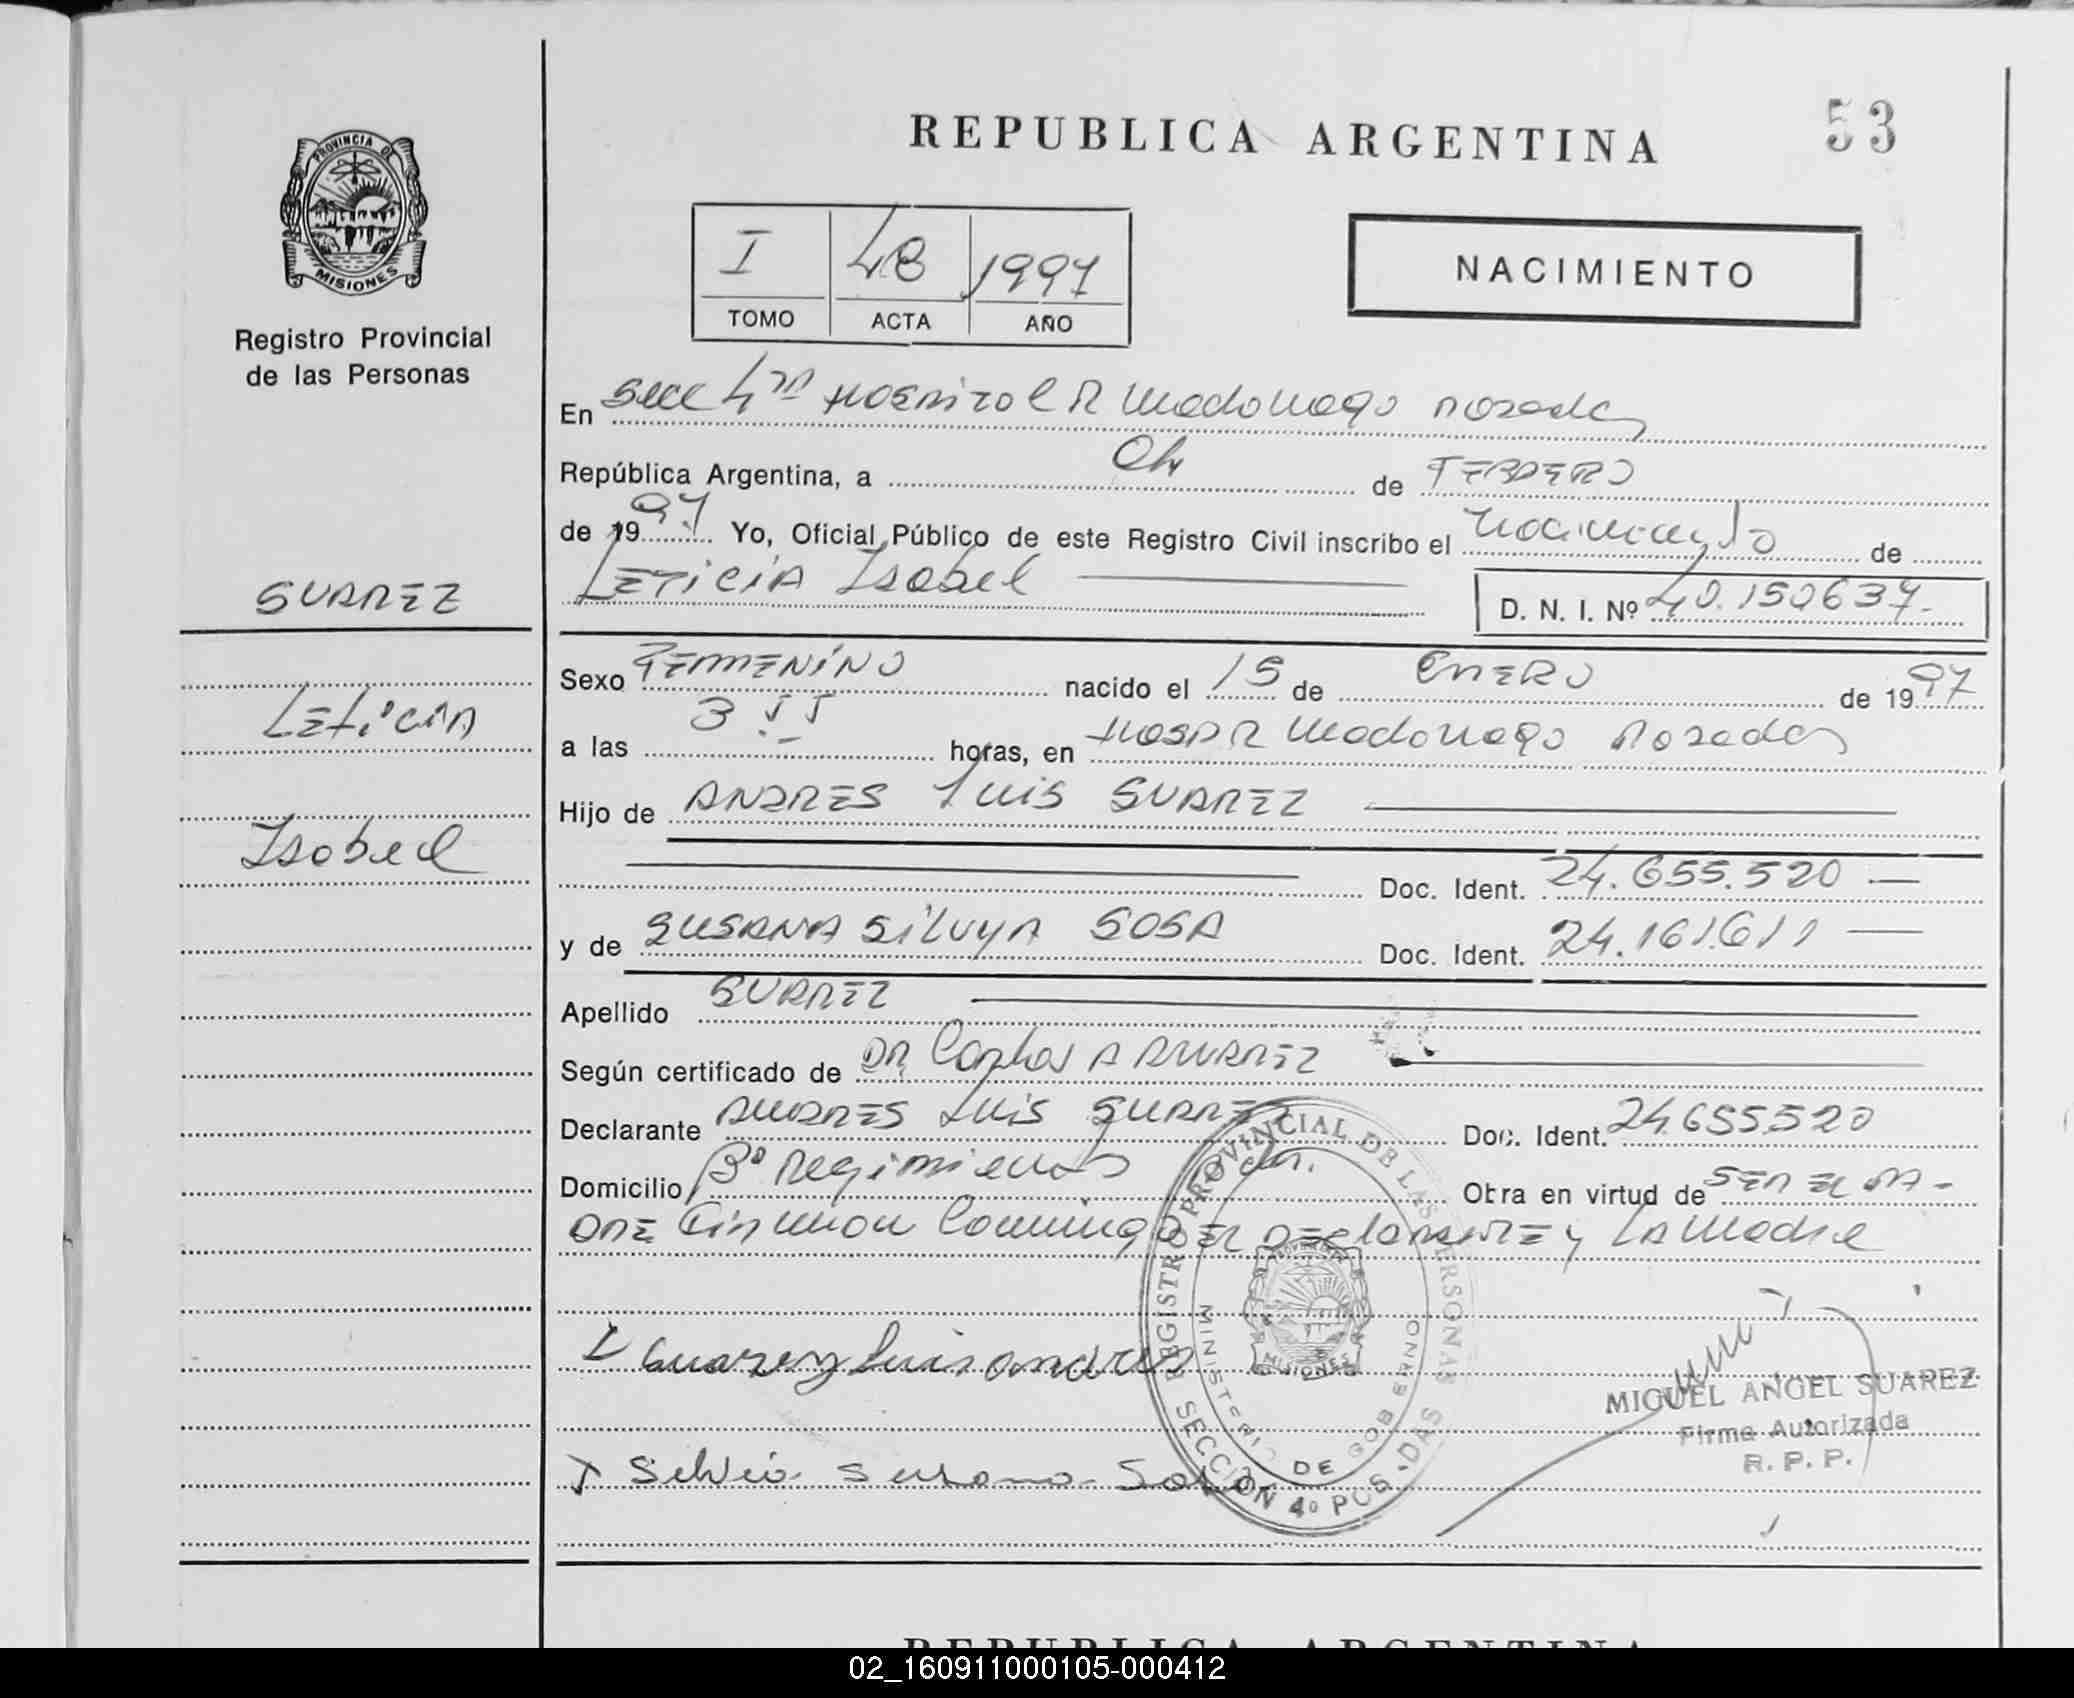 REPUBLICA ARGENTINA
53
PROVINCIA DE
MISIONES
Registro Provincial
de las Personas
I 48 1997
TOMO ACTA AÑO
NACIMIENTO
En Secc 4ta Hospital R Madariaga Posadas
República Argentina, a 04 de FEBRERO
de 1997 Yo, Oficial Público de este Registro Civil inscribo el nacimiento de
LETICIA Isabel
D. N. I. Nº 40.150637.
SUAREZ
Leticia
Isabel
Sexo FEMENINO nacido el 15 de ENERO de 1997
a las 3 horas, en HOSP R Madariaga Posadas
Hijo de ANDRES LUIS SUAREZ
Doc. Ident. 24.655.520
y de SUSANA SILVYA SOSA Doc. Ident. 24.161.611
Apellido SUAREZ
Según certificado de DR Carlos A ALVAREZ
Declarante ANDRES LUIS SUAREZ Doc. Ident. 24.655520
Domicilio Bº Regimiento Otra en virtud de SER EL PA-
DRE Firman Conmigo EL DECLARANTE y LA Madre
Suarez Luis andres
Silvia Susana Sosa
REGISTRO PROVINCIAL DE LAS PERSONAS
MINISTERIO DE GOBIERNO
MISIONES
SECCION 4º POS-DAS
MIGUEL ANGEL SUAREZ
Firma Autorizada
R. P. P.
REPUBLICA ARGENTINA
02_160911000105-000412